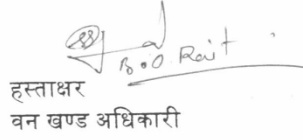 B.O. Rait
हस्ताक्षर
वन खण्ड अधिकारी